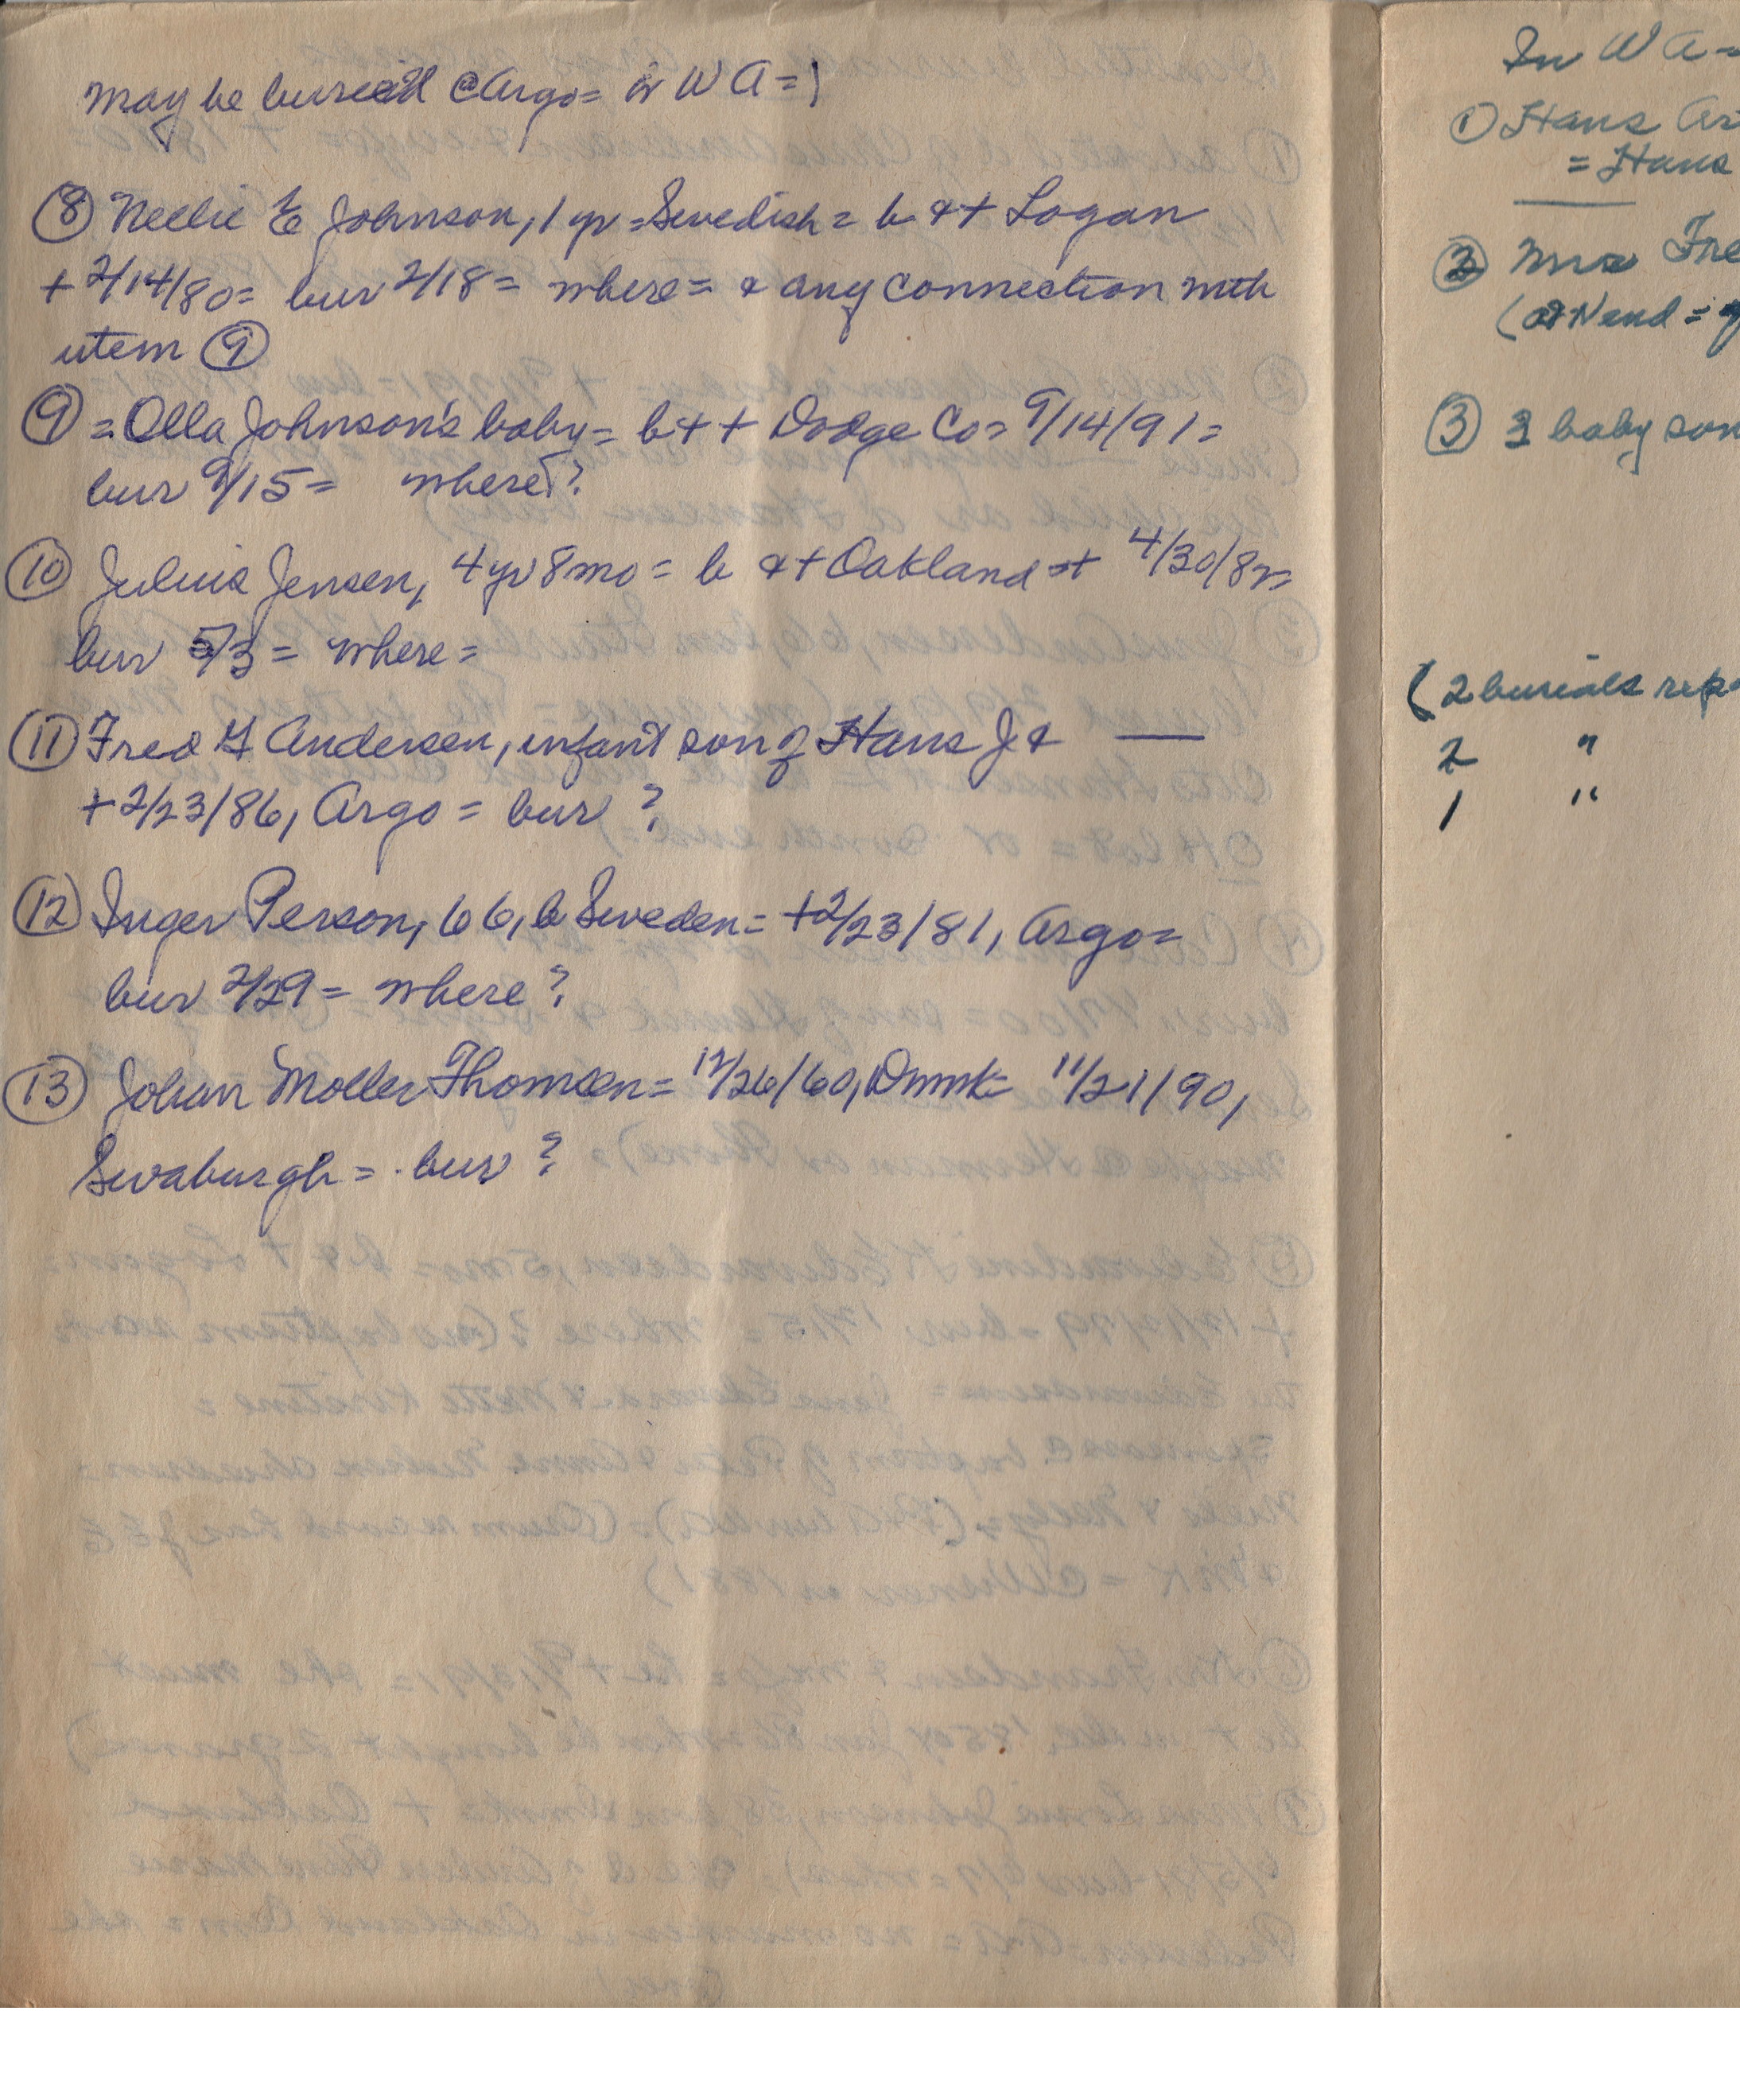 may be buried @ Argo = or W A =)
⑧ Nellie E Johnson, 1 yr = Swedish = b & + Logan
+ 2/14/80 = bur 2/18 = where = & any connection with
item ⑨
⑨ = Olla Johnson's baby = b + + Dodge Co = 9/14/91 =
bur 9/15 = where?
⑩ Julius Jensen, 4 yr 8 mo = b & + Oakland = + 4/30/82 =
bur 5/3 = where =
⑪ Fred Andersen, infant son of Hans J & —
+ 2/23/86, Argo = bur ?
⑫ Inger Person, 66, b Sweden = + 2/23/81, Argo =
bur 2/29 = where ?
⑬ Johan Moller Thomsen = 12/26/60, Dnmk = 11/21/90,
Swaburgh = bur ?
In W A =
① Hans
= Hans
② Mrs Fre
(or N end =
③ 3 baby son
(2 burials rep
2 "
1 "